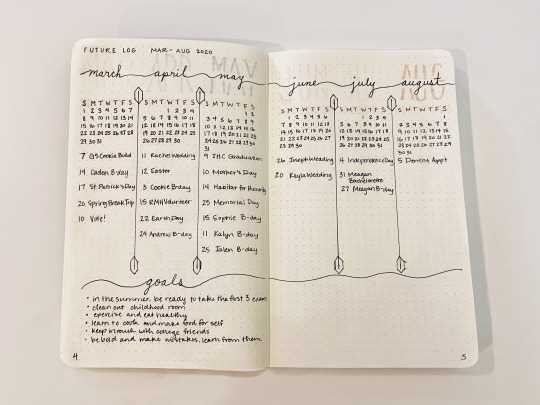 FUTURE LOG MAR-AUG 2020
march april may
S M T W T F S
1 2 3 4 5 6 7
8 9 10 11 12 13 14
15 16 17 18 19 20 21
22 23 24 25 26 27 28
29 30 31
7 GS Cookie Build
14 Caden B-day
17 St. Patrick's Day
20 Spring Break Trip
10 Vote!
S M T W T F S
1 2 3 4
5 6 7 8 9 10 11
12 13 14 15 16 17 18
19 20 21 22 23 24 25
26 27 28 29 30
11 Rache Wedding
12 Easter
3 Cookie B-day
15 RMH Volunteer
22 Earth Day
24 Andrew B-day
S M T W T F S
1 2
3 4 5 6 7 8 9
10 11 12 13 14 15 16
17 18 19 20 21 22 23
24 25 26 27 28 29 30
31
9 JHC Graduation
10 Mother's Day
14 Habitat for Humanity
25 Memorial Day
15 Sophie B-day
11 Kalyn B-day
25 Jalen B-day
june july august
AUG
S M T W T F S
1 2 3 4 5 6
7 8 9 10 11 12 13
14 15 16 17 18 19 20
21 22 23 24 25 26 27
28 29 30
26 Joseph Wedding
20 Kayla Wedding
S M T W T F S
1 2 3 4
5 6 7 8 9 10 11
12 13 14 15 16 17 18
19 20 21 22 23 24 25
26 27 28 29 30 31
4 Independence Day
31 Meagan
Bachelorette
27 Meagan B-day
S M T W T F S
1
2 3 4 5 6 7 8
9 10 11 12 13 14 15
16 17 18 19 20 21 22
23 24 25 26 27 28 29
30 31
5 Dentist Appt
goals
• in the summer, be ready to take the first 3 exams
• clean out childhood room
• exercise and eat healthy
• learn to cook and make food for self
• keep in touch with college friends
• be bold and make mistakes, learn from them
4
5